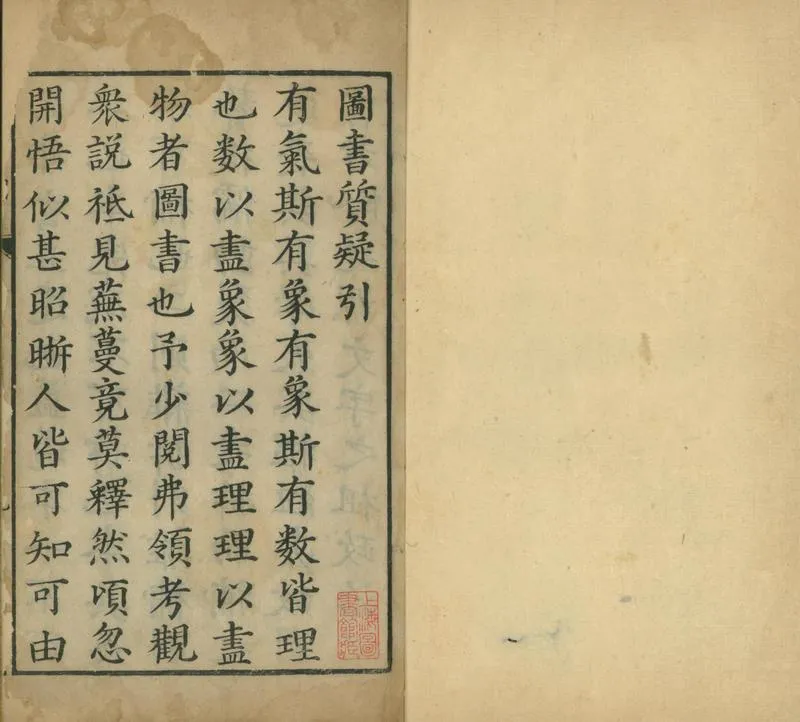 圖書質疑引
有氣斯有象有象斯有数皆理
也数以盡象象以盡理理以盡
物者圖書也予少閱弗領考觀
衆説祗見蕪蔓竟莫釋然頃忽
開悟似甚昭晣人皆可知可由
上海圖書館藏